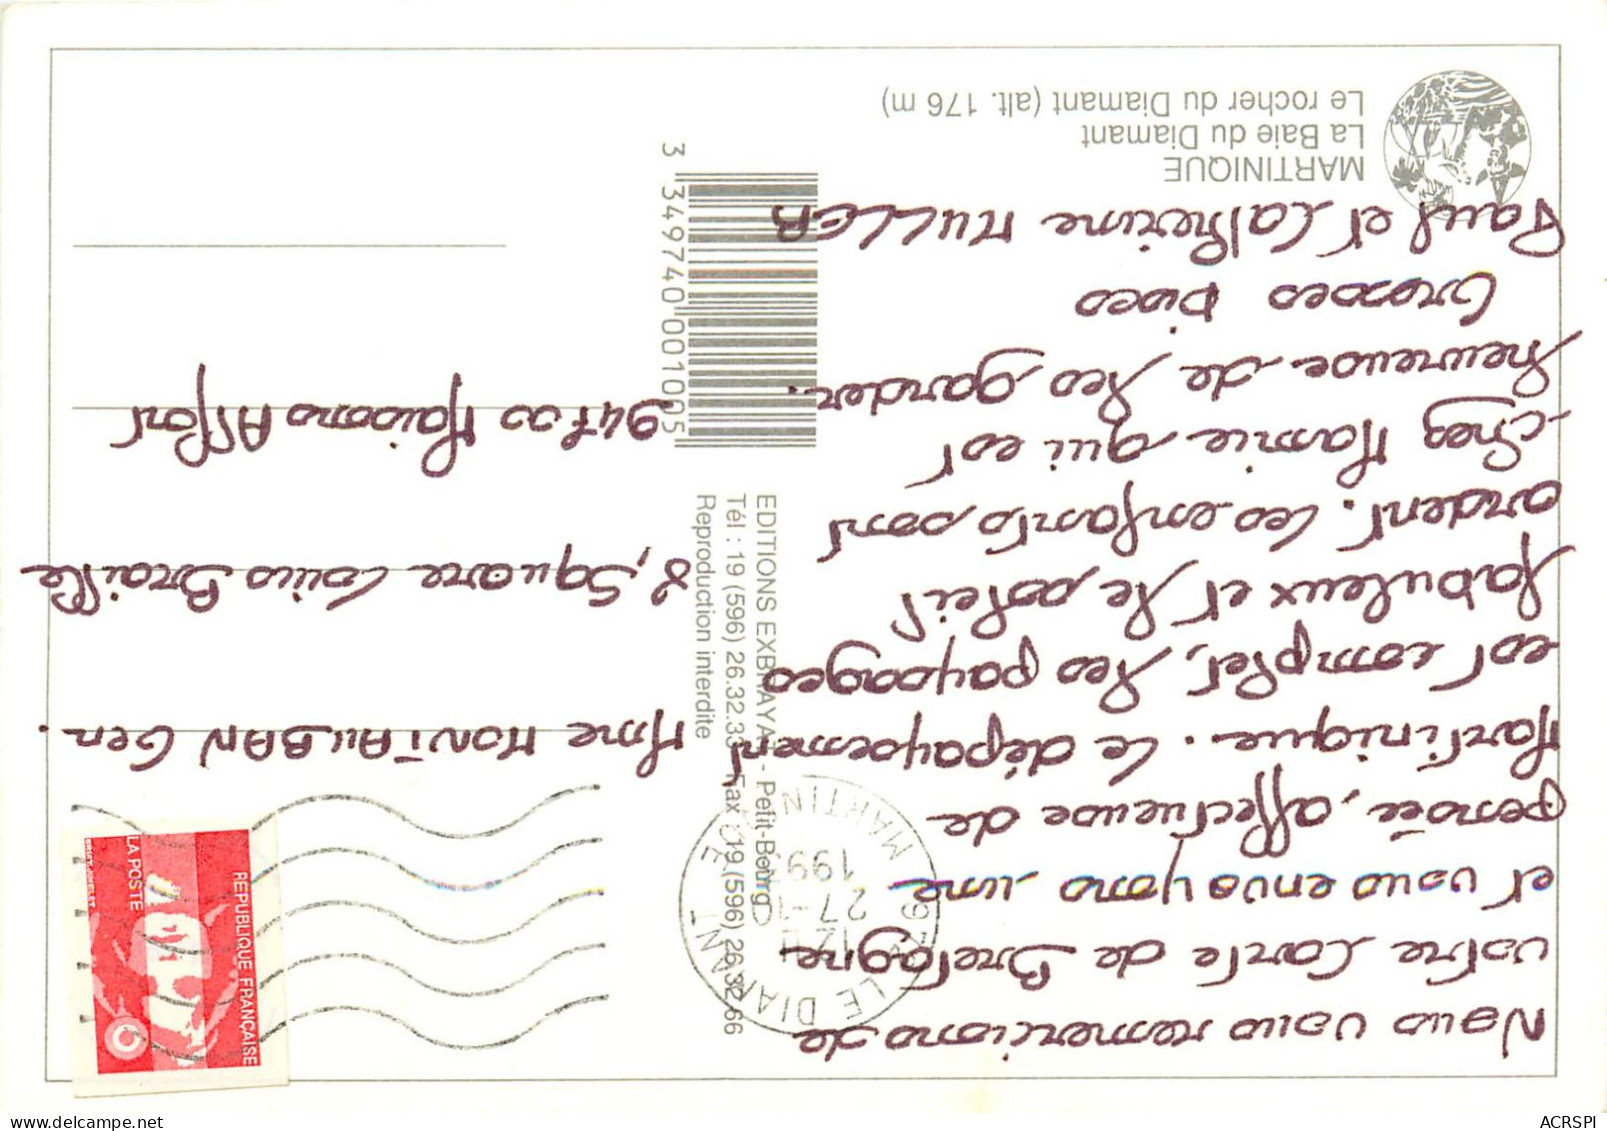 MARTINIQUE
La Baie du Diamant
Le rocher du Diamant (alt. 176 m)
Nous vous remercions de
votre carte de Bretagne
et vous envoyons une
pensée, affectueuse de
Martinique. Le dépaysement
est complet, les paysages
fabuleux et le soleil
ardent. Les enfants sont
chez Mamie qui est
heureuse de les garder.
Grosses Bises
Paul et Catherine MULLER
EDITIONS EXBRAYAT - Petit-Bourg
Tél : 19 (596) 26.32.33 - Fax : 19 (596) 26.32.66
Reproduction interdite
3 349740 001005
LE DIAMANT
MARTIN
27
199
REPUBLIQUE FRANÇAISE
LA POSTE
Mme MONTAUBAN Gen.
8, Square Louis Braille
94700 Maisons Alfort
ACRSPI